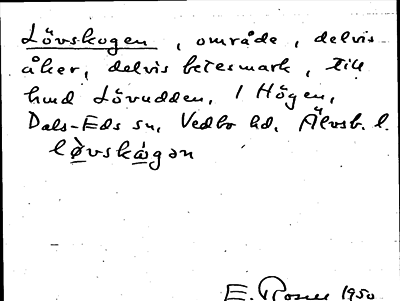 Lövskogen, område, delvis
åker, delvis betesmark, till
hmd Lövudden, 1 Högen,
Dals-Eds sn, Vedbo hd, Älvsb. l.
lø̀vskȧgən
E. Rosen 1950